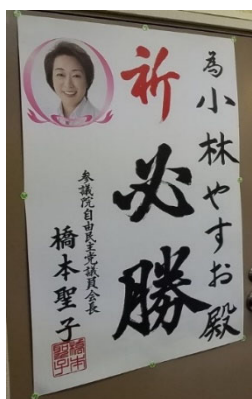 為小林やすお殿
祈必勝
参議院自由民主党議員会長
橋本聖子
橋本
聖子